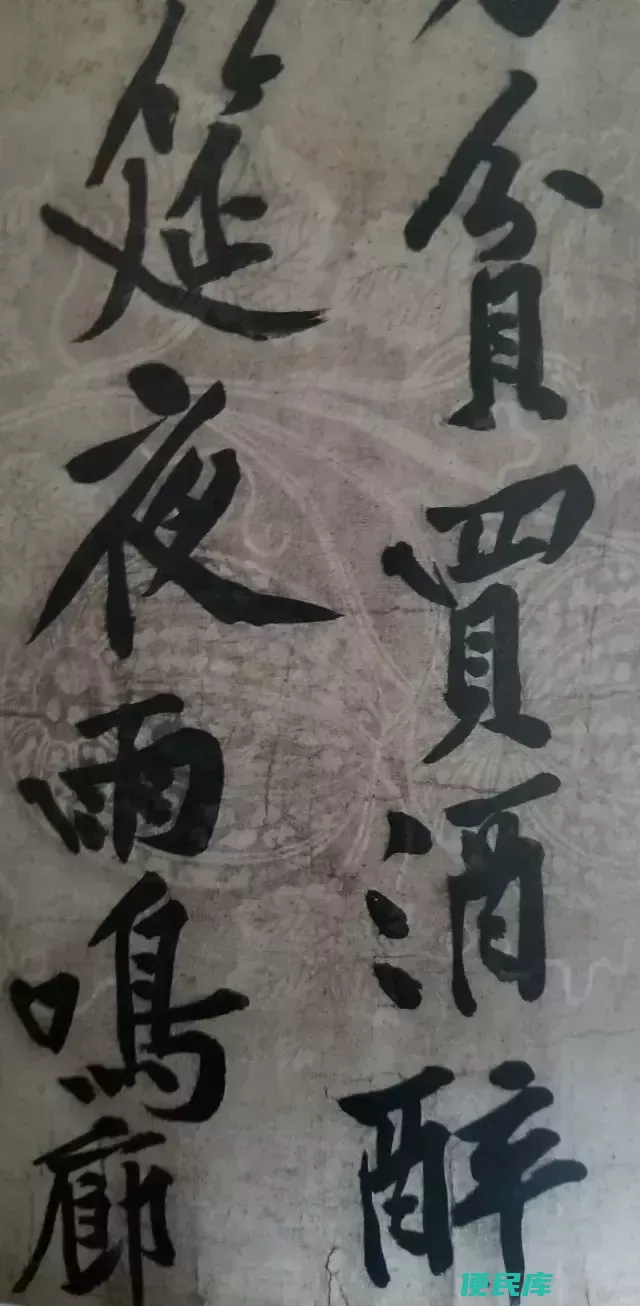 貧買酒醉
筵夜雨鳴廊
便民库